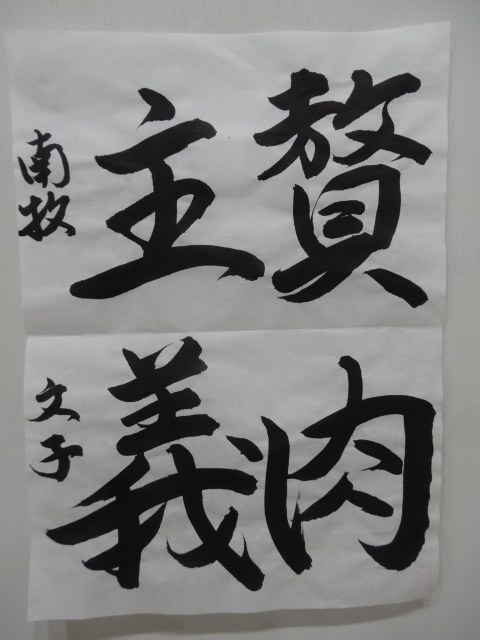 贅肉
主義
南牧
文子